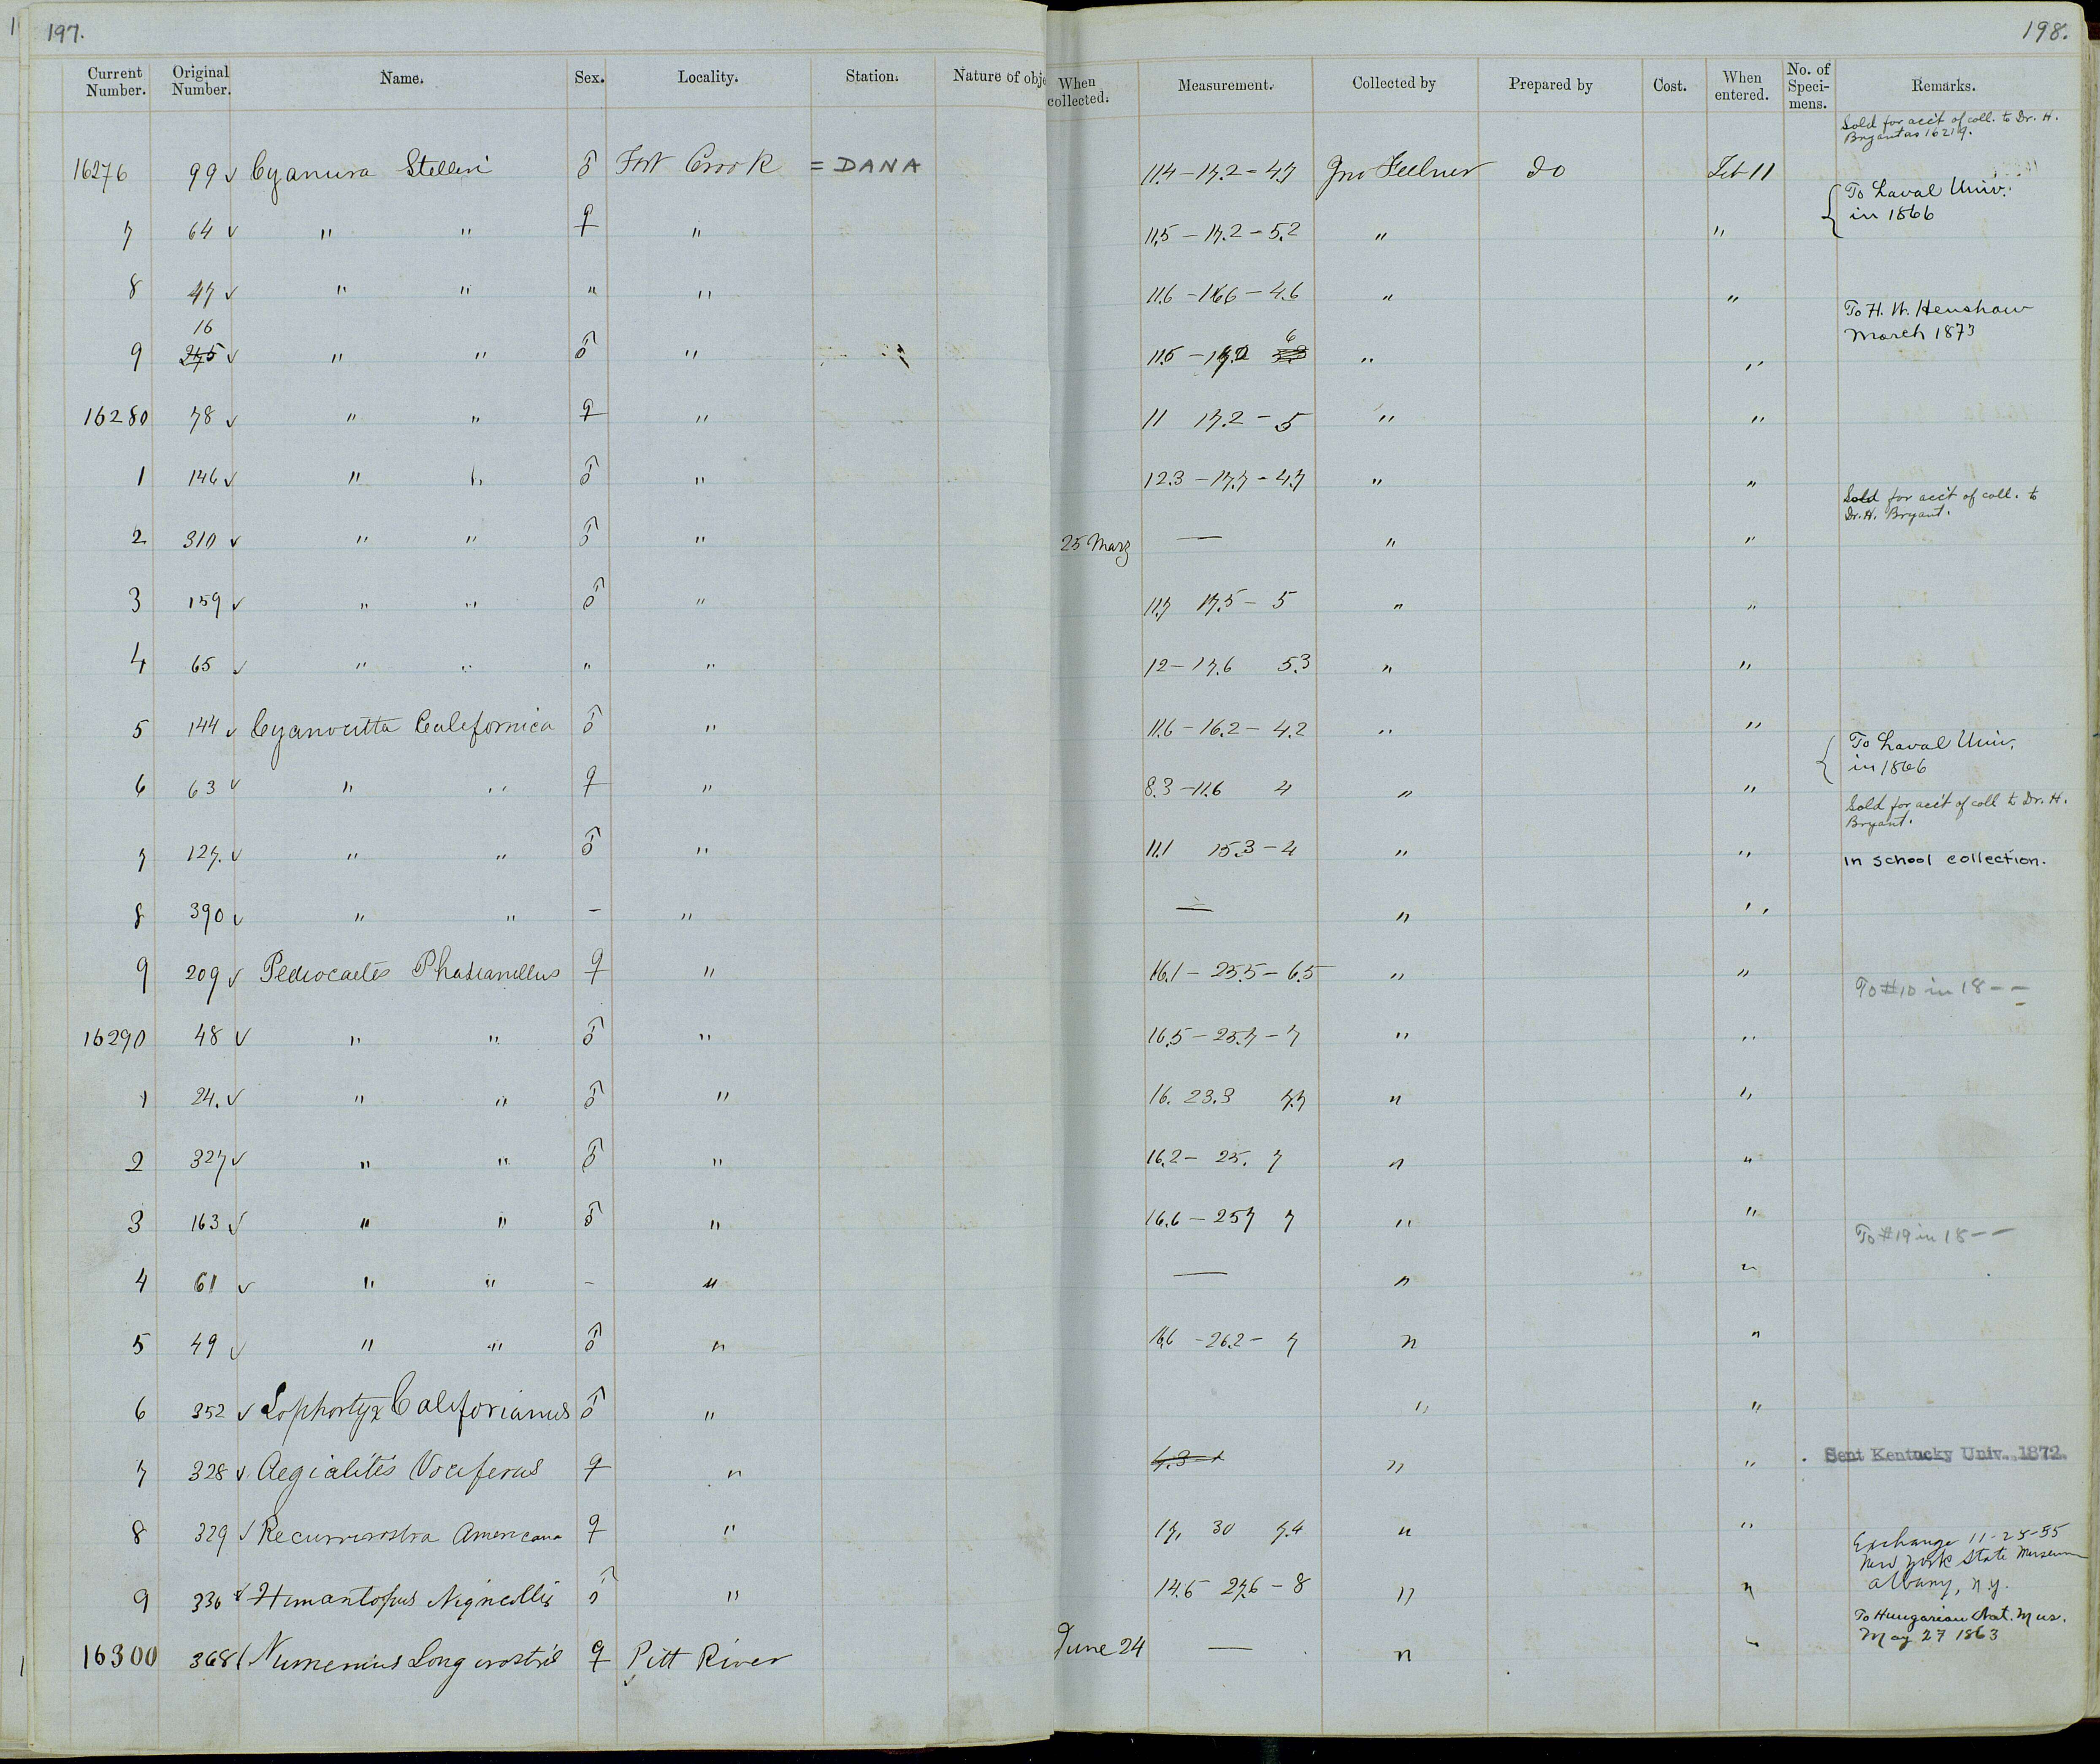 197.
198.
Current Number. Original Number. Name. Sex. Locality. Station. Nature of obje When collected. Measurement. Collected by Prepared by Cost. When entered. No. of Speci-mens. Remarks.
Sold for acc't of coll. to Dr. H.
Bryant as 16219.
16276 99 ✓ Cyanura Stelleri ♂ Fort Crook = DANA 11.4 – 17.2 – 4.7 Jno Feilner Do Feb 11
To Laval Univ.
in 1866
7 64 ✓ " " ♀ " 11.5 – 17.2 – 5.2 " "
8 47 ✓ " " " " 11.6 – 16.6 – 4.6 " "
To H. W. Henshaw
March 1873
16
9 275 ✓ " " ♂ " 11.5 – 17.2 6 " "
16280 78 ✓ " " ♀ " 11 17.2 – 5 " "
1 146 ✓ " " ♂ " 12.3 – 17.7 – 4.7 " "
Sold for acc't of coll. to
Dr. H. Bryant.
2 310 ✓ " " ♂ " 25 Marz — " "
3 159 ✓ " " ♂ " 11.7 17.5 – 5 " "
4 65 ✓ " " " " 12 – 17.6 5.3 " "
5 144 ✓ Cyanocitta Californica ♂ " 11.6 – 16.2 – 4.2 " "
To Laval Univ.
in 1866
6 63 ✓ " " ♀ " 8.3 – 11.6 4 " "
Sold for acc't of coll to Dr. H.
Bryant.
7 127. ✓ " " ♂ " 11.1 15.3 – 4 " " In school collection.
8 390 ✓ " " – " — " "
9 209 ✓ Pediocaetes Phasianellus ♀ " 16.1 – 25.5 – 6.5 " "
To #10 in 18 – –
16290 48 ✓ " " ♂ " 16.5 – 25.7 – 7 " "
1 24. ✓ " " ♂ " 16. 23.3 7.7 " "
2 327 ✓ " " ♂ " 16.2 – 25. 7 " "
3 163 ✓ " " ♂ " 16.6 – 25 7 7 " "
To #19 in 18 – –
4 61 ✓ " " – " — " "
5 49 ✓ " " ♂ " 16.6 – 26.2 – 7 " "
6 352 ✓ Lophortyx Califorianus ♂ " " "
7 328 ✓ Aegialitis Vociferus ♀ " " " Sent Kentucky Univ., 1872.
8 329 ✓ Recurvirostra Americana ♀ " 17, 30 7.4 " "
Exchange 11-25-55
New York State Museum
Albany, N.Y.
9 336 ✓ Himantopus Nigricollis ♂ " 14.5 27.6 – 8 " "
To Hungarian Nat. Mus.
May 27 1863
16300 368 ✓ Numenius Longirostris ♀ Pitt River June 24 — " "